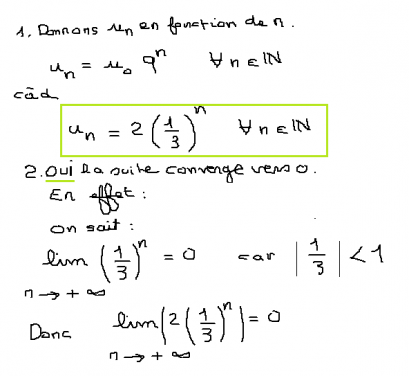 1. Donnons un en fonction de n.
un = u₀ qⁿ ∀ n ∈ ℕ
càd
un = 2 (1/3)ⁿ ∀ n ∈ ℕ
2. oui la suite converge vers 0.
En effet :
On sait :
lim (1/3)ⁿ = 0 car |1/3| < 1
n → + ∞
Donc lim (2 (1/3)ⁿ) = 0
n → + ∞